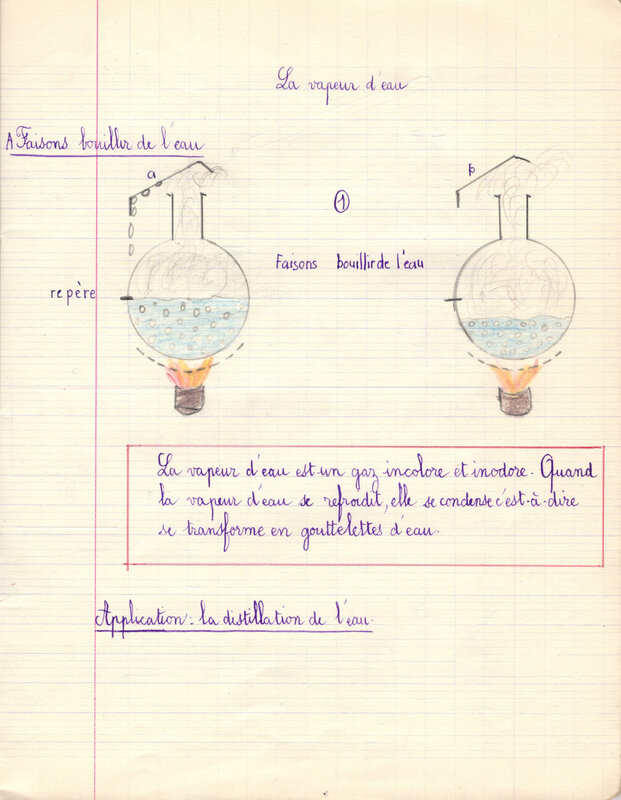 La vapeur d'eau
A Faisons bouillir de l'eau
a
b
1
Faisons bouillir de l'eau
repère
La vapeur d'eau est un gaz incolore et inodore. Quand
la vapeur d'eau se refroidit, elle se condense c'est-à-dire
se transforme en gouttelettes d'eau.
Application : la distillation de l'eau.